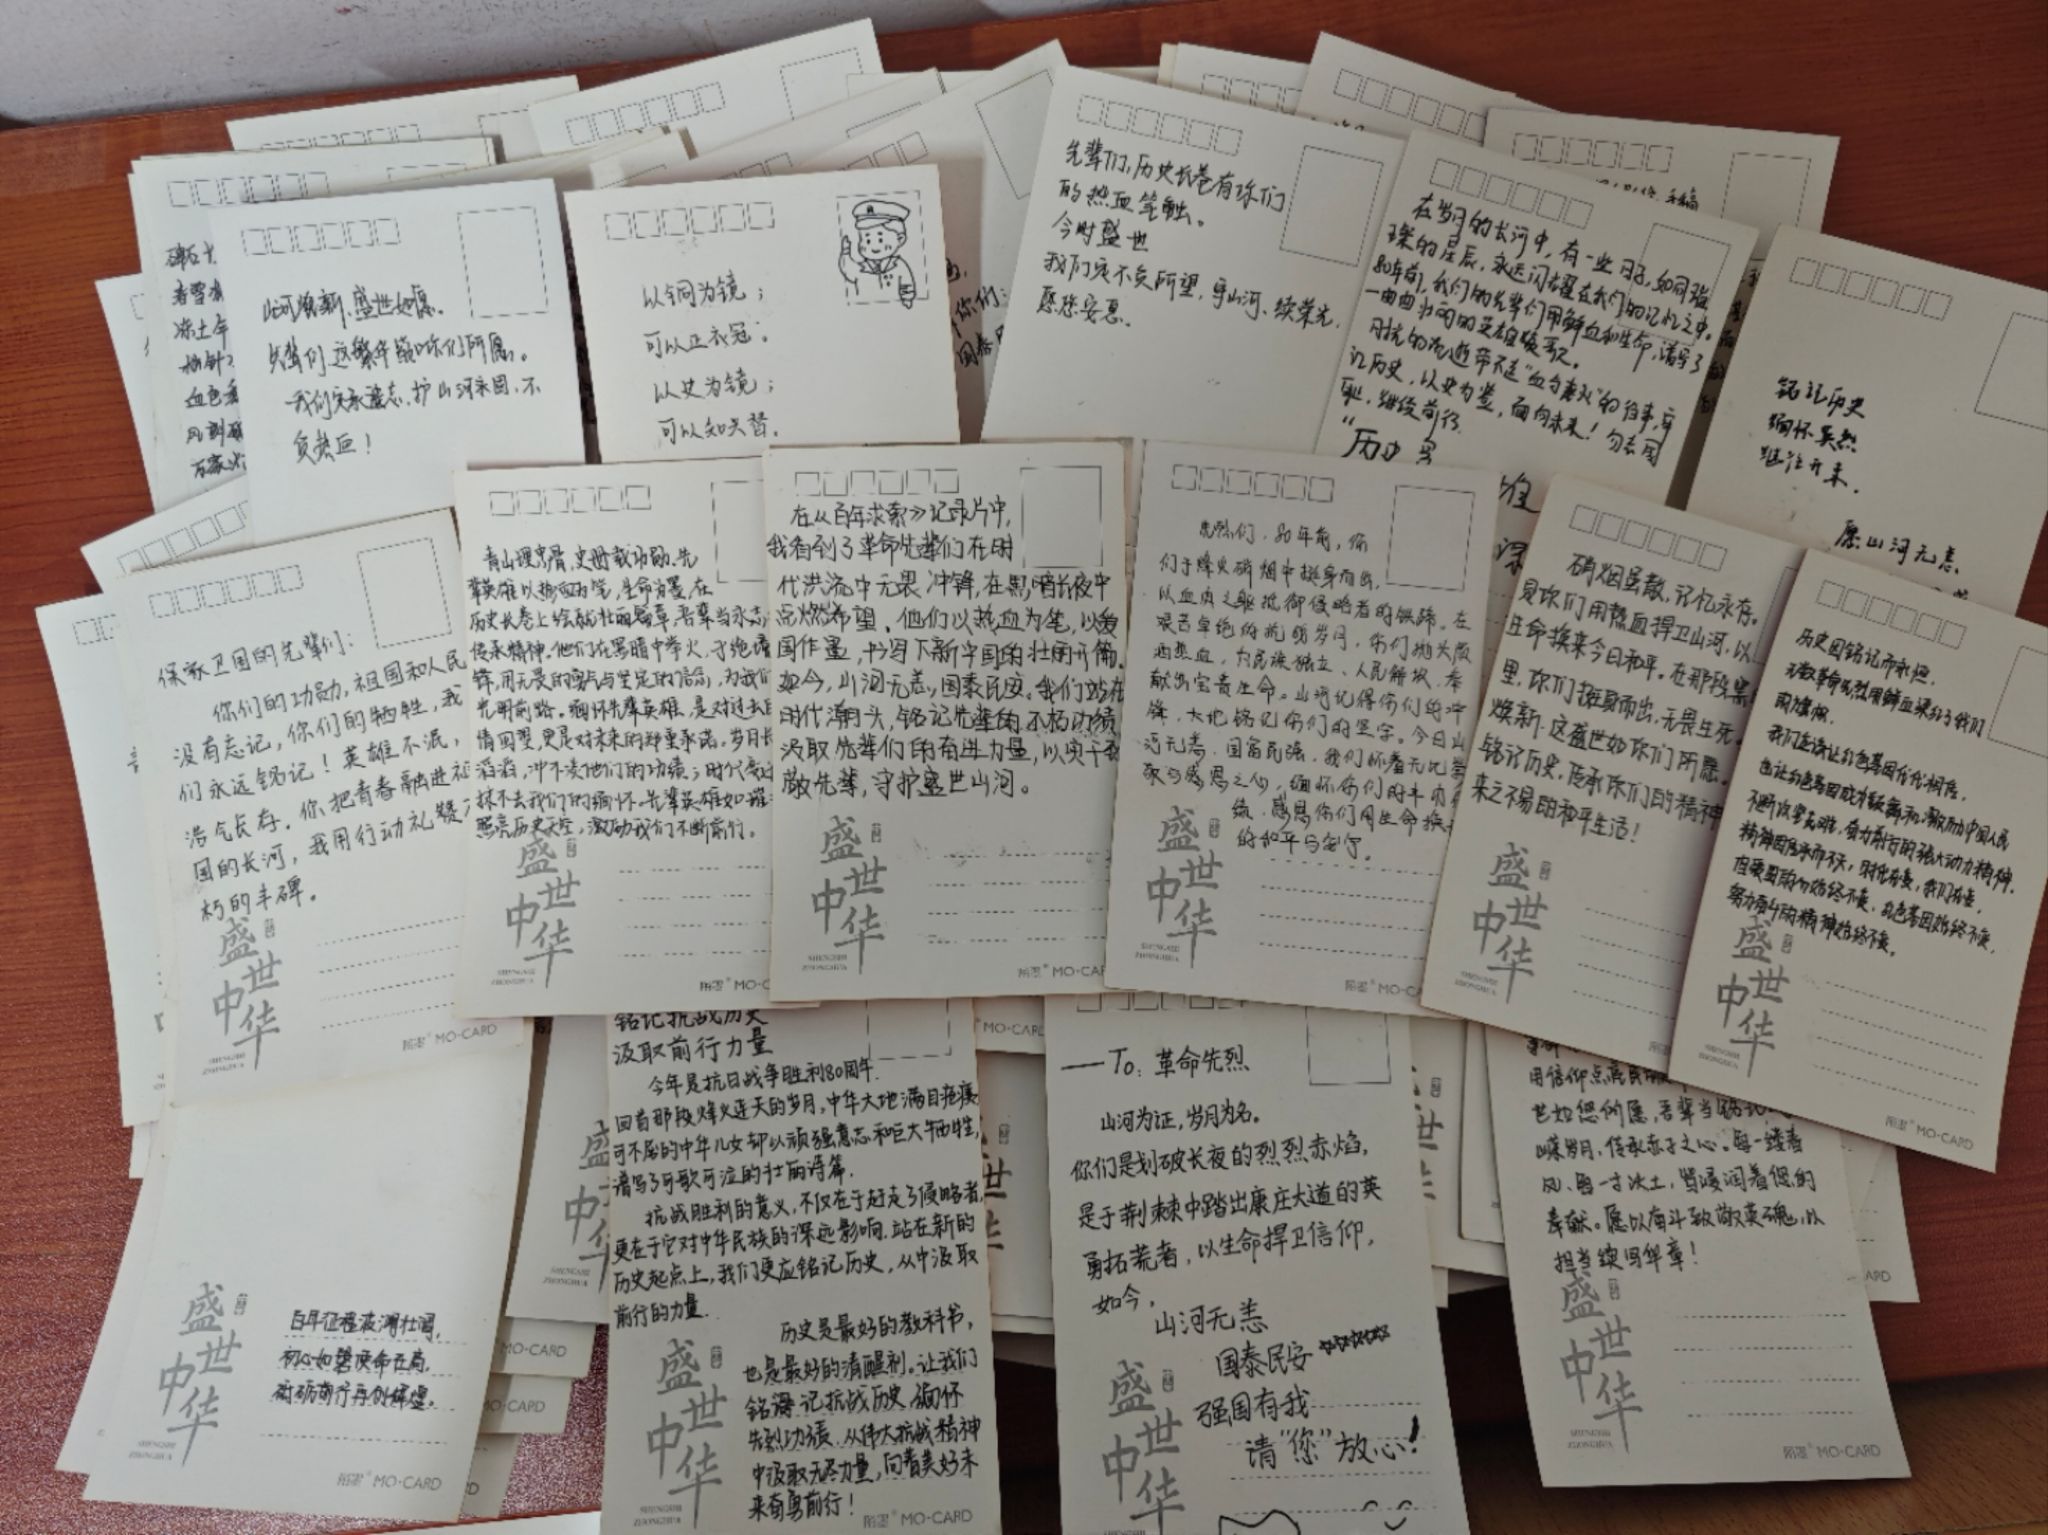 山河焕新、盛世如愿。
先辈们这繁华如你们所愿。
我们定承遗志,护山河永固,不
负热血!
以铜为镜;
可以正衣冠;
以史为镜;
可以知兴替。
先辈们,历史长卷有你们
的热血笔触。
今时盛世
我们定不负所望,守山河、续荣光,
愿您安息。
在岁月的长河中,有一些日子,如同璀
璨的星辰,永远闪耀在我们的记忆之中。
80年前,我们的先辈们用鲜血和生命,谱写了
一曲曲壮丽的英雄赞歌。
时光的流逝带不走“血与意火”的往事,牢
记历史,以史为鉴,面向未来!勿忘国
耻,继续前行
铭记历史
缅怀英烈
继往开来。
愿山河无恙
保家卫国的先辈们:
你们的功勋,祖国和人民
没有忘记,你们的牺牲,我
们永远铭记!英雄不泯,
浩气长存。你把青春融进祖
国的长河,我用行动礼赞不
朽的丰碑。
盛世中华
SHENGSHI
ZHONGHUA
陌墨® MO-CARD
青山埋忠骨,史册载功勋。先
辈英雄以热血为笔,生命为墨,在
历史长卷上绘就壮丽篇章,吾辈当永志
传承精神。他们在黑暗中举火,于绝境
锋,用无畏的勇气与坚定的信念,为我们
光明前路。缅怀先辈英雄,是对过去的
情回望,更是对未来的郑重承诺。岁月长
滔滔,冲不淡他们的功绩;时代变迁
抹不去我们的缅怀。先辈英雄如璀
照亮历史天空,激励我们不断前行。
盛世中华
SHENGSHI
ZHONGHUA
陌墨® MO-C
在《百年求索》记录片中,
我看到了革命先辈们在时
代洪流中无畏冲锋,在黑暗长夜中
点燃希望。他们以热血为笔,以爱
国作墨,书写下新中国的壮丽开篇。
如今,山河无恙,国泰民安。我们站在
时代潮头,铭记先辈的不朽功绩
汲取先辈们的奋进力量,以实干致
敬先辈,守护盛世山河。
盛世中华
SHENGSHI
ZHONGHUA
陌墨® MO-CAR
先烈们,80年前,你
们于烽火硝烟中挺身而出,
以血肉之躯抵御侵略者的铁蹄。在
艰苦卓绝的抗战岁月,你们抛头颅
洒热血,为民族独立、人民解放,奉
献出宝贵生命。山河记得你们的冲
锋,大地铭记你们的坚守。今日山
河无恙,国富民强,我们怀着无比崇
敬与感恩之心,缅怀你们的丰功伟
绩,感恩你们用生命换来
的和平与安宁。
盛世中华
SHENGSHI
ZHONGHUA
陌墨® MO-CA
硝烟虽散,记忆永存。
是你们用热血捍卫山河,以
生命换来今日和平。在那段黑
里,你们挺身而出,无畏生死。
焕新,这盛世如你们所愿。
铭记历史,传承你们的精神
来之不易的和平生活!
盛世中华
SHENGSHI
ZHONGHUA
历史因铭记而永恒,
无数革命先烈用鲜血染红了我们
的旗帜。
我们应该让红色基因代代相传,
也让红色基因成为鼓舞和激励中国人民
不断攻坚克难,奋力前行的强大动力精神。
精神因传承而不灭,时代在变,我们在变,
但爱国的心始终不变,红色基因始终不变,
努力奋斗的精神始终不变。
盛世中华
SHENGSHI
ZHONGHUA
陌墨® MO-CARD
百年征程波澜壮阔,
初心如磐使命在肩,
砥砺前行再创辉煌。
盛世中华
SHENGSHI
ZHONGHUA
陌墨® MO-CARD
铭记抗战历史
汲取前行力量
今年是抗日战争胜利80周年.
回首那段烽火连天的岁月,中华大地满目疮痍
可不屈的中华儿女却以顽强意志和巨大牺牲,
谱写了可歌可泣的壮丽诗篇.
抗战胜利的意义,不仅在于赶走了侵略者,
更在于它对中华民族的深远影响.站在新的
历史起点上,我们更应铭记历史,从中汲取
前行的力量.
历史是最好的教科书,
也是最好的清醒剂.让我们
铭记抗战历史,缅怀
先烈功绩.从伟大抗战精神
中汲取无尽力量,向着美好未
来奋勇前行!
盛世中华
SHENGSHI
ZHONGHUA
陌墨® MO-CARD
——To:革命先烈
山河为证,岁月为名。
你们是划破长夜的烈烈赤焰,
是于荆棘中踏出康庄大道的英
勇拓荒者,以生命捍卫信仰,
如今,
山河无恙
国泰民安
强国有我
请“您”放心!
盛世中华
用信仰点亮民
世如您所愿,吾辈当铭记
嵘岁月,传承赤子之心。每一缕春
风、每一寸沃土,皆浸润着您的
奉献。愿以奋斗致敬英魂,以
担当续写华章!
盛世中华
SHENGSHI
ZHONGHUA
陌墨® MO-CARD